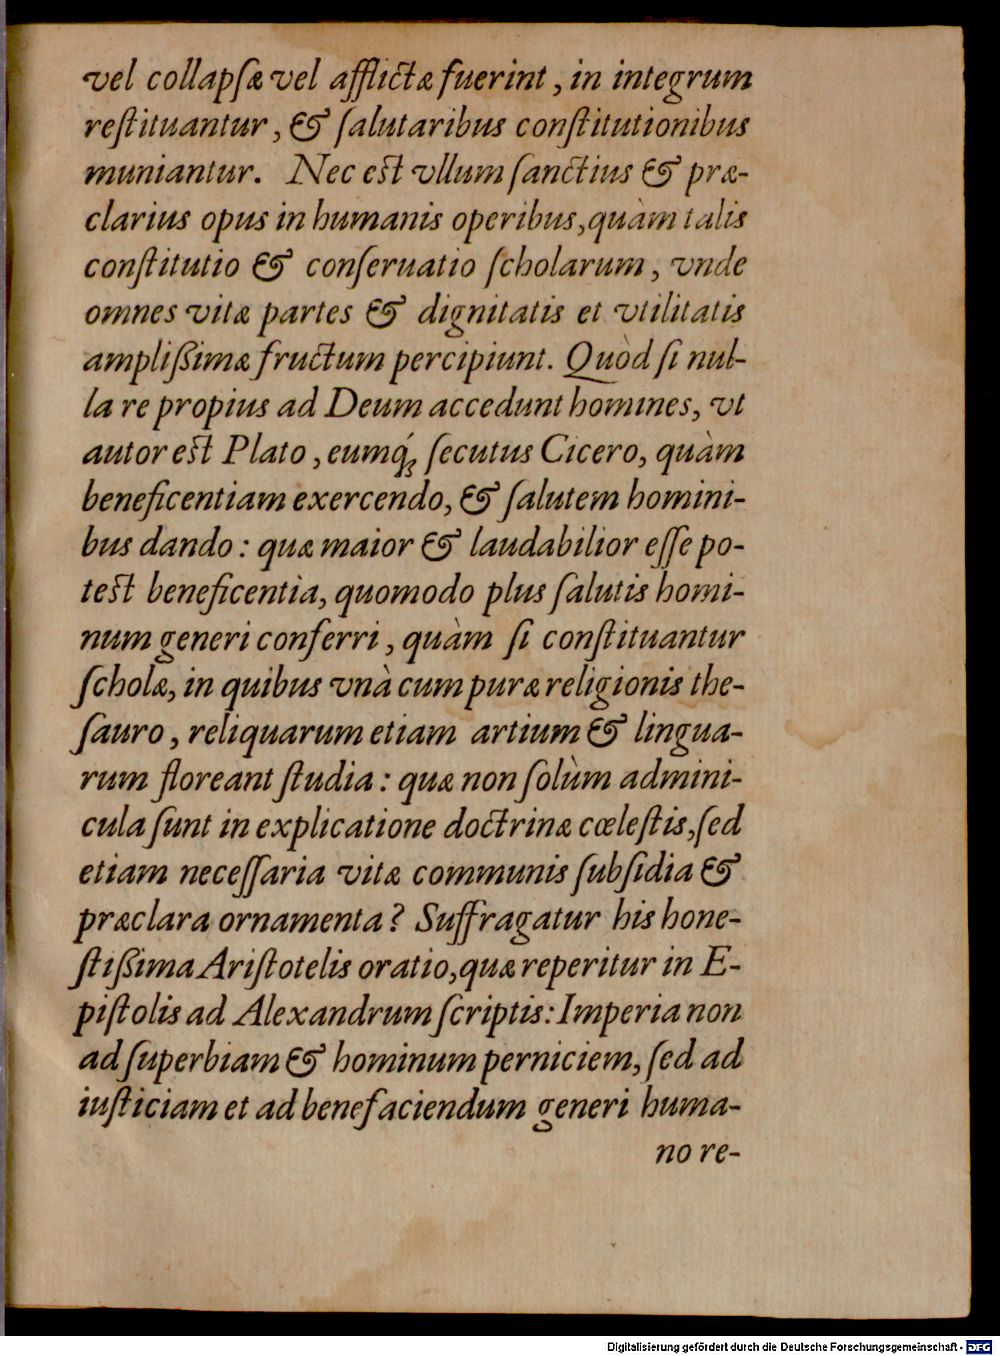 vel collapſæ vel afflictæ fuerint, in integrum
reſtituantur, & ſalutaribus conſtitutionibus
muniantur. Nec est vllum ſanctius & præ-
clarius opus in humanis operibus, quàm talis
conſtitutio & conſeruatio ſcholarum, vnde
omnes vitæ partes & dignitatis et vtilitatis
amplißimæ fructum percipiunt. Quòd ſi nul-
la re propius ad Deum accedunt homines, vt
autor est Plato, eumq́ꝫ ſecutus Cicero, quàm
beneficentiam exercendo, & ſalutem homini-
bus dando: quæ maior & laudabilior eſſe po-
test beneficentia, quomodo plus ſalutis homi-
num generi conferri, quàm ſi conſtituantur
ſcholæ, in quibus vnà cum puræ religionis the-
ſauro, reliquarum etiam artium & lingua-
rum floreant ſtudia: quæ non ſolùm admini-
cula ſunt in explicatione doctrinæ cœleſtis, ſed
etiam neceſſaria vitæ communis ſubſidia &
præclara ornamenta? Suffragatur his hone-
ſtißima Ariſtotelis oratio, quæ reperitur in E-
piſtolis ad Alexandrum ſcriptis: Imperia non
ad ſuperbiam & hominum perniciem, ſed ad
iuſticiam et ad benefaciendum generi huma-
no re-
Digitalisierung gefördert durch die Deutsche Forschungsgemeinschaft - DFG